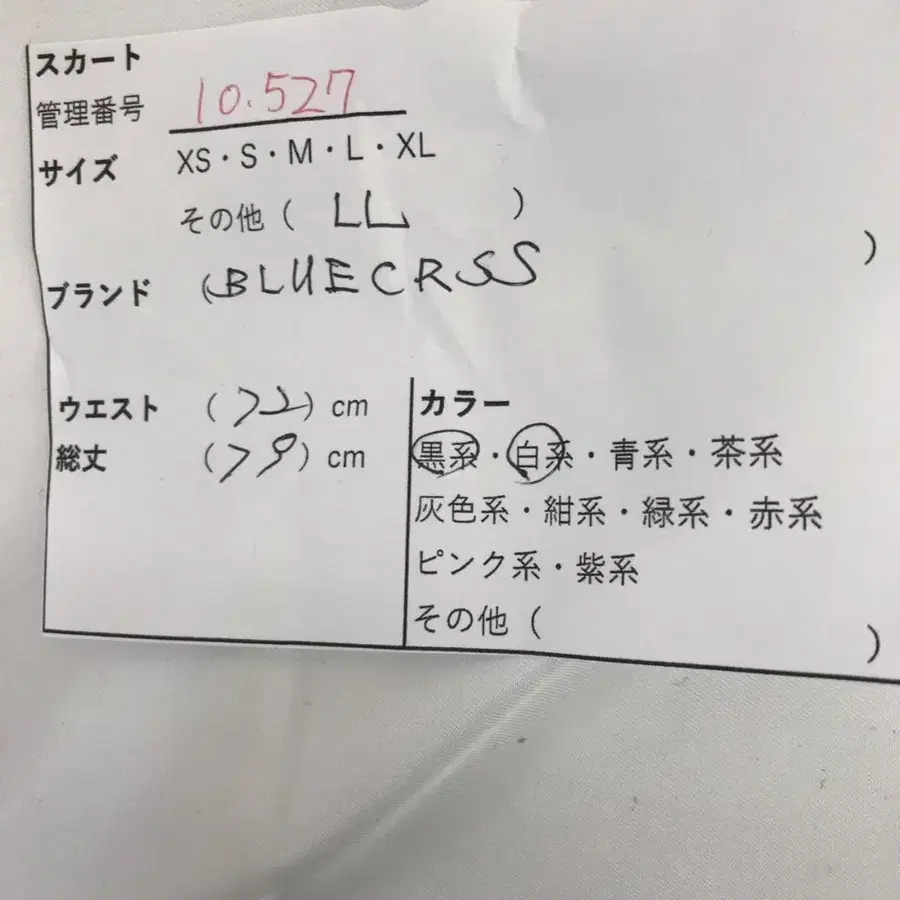 スカート
管理番号 10.527
サイズ XS・S・M・L・XL
その他 ( LL )
ブランド (BLUECRSS )
ウエスト (72) cm
総丈 (79) cm
カラー
黒系・白系・青系・茶系
灰色系・紺系・緑系・赤系
ピンク系・紫系
その他 ( )